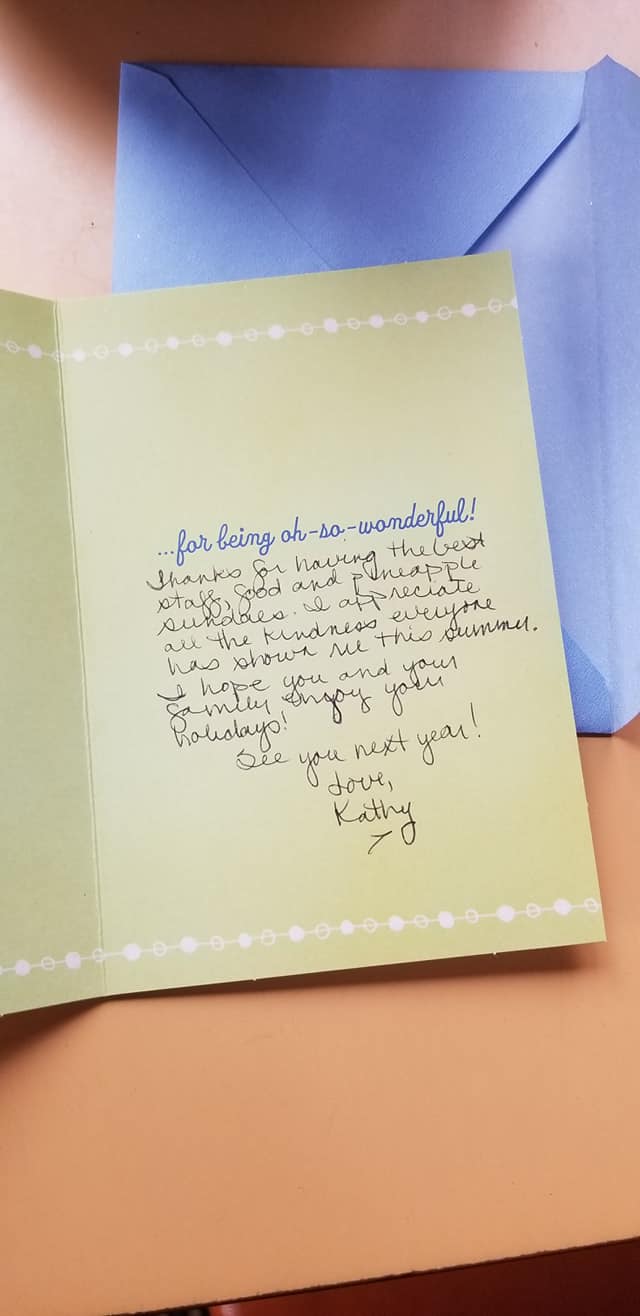 ...for being oh-so-wonderful!
Thanks for having the best
staff, food and pineapple
sundaes. I appreciate
all the kindness everyone
has shown me this summer.
I hope you and your
family enjoy your
holidays!
See you next year!
Love,
Kathy